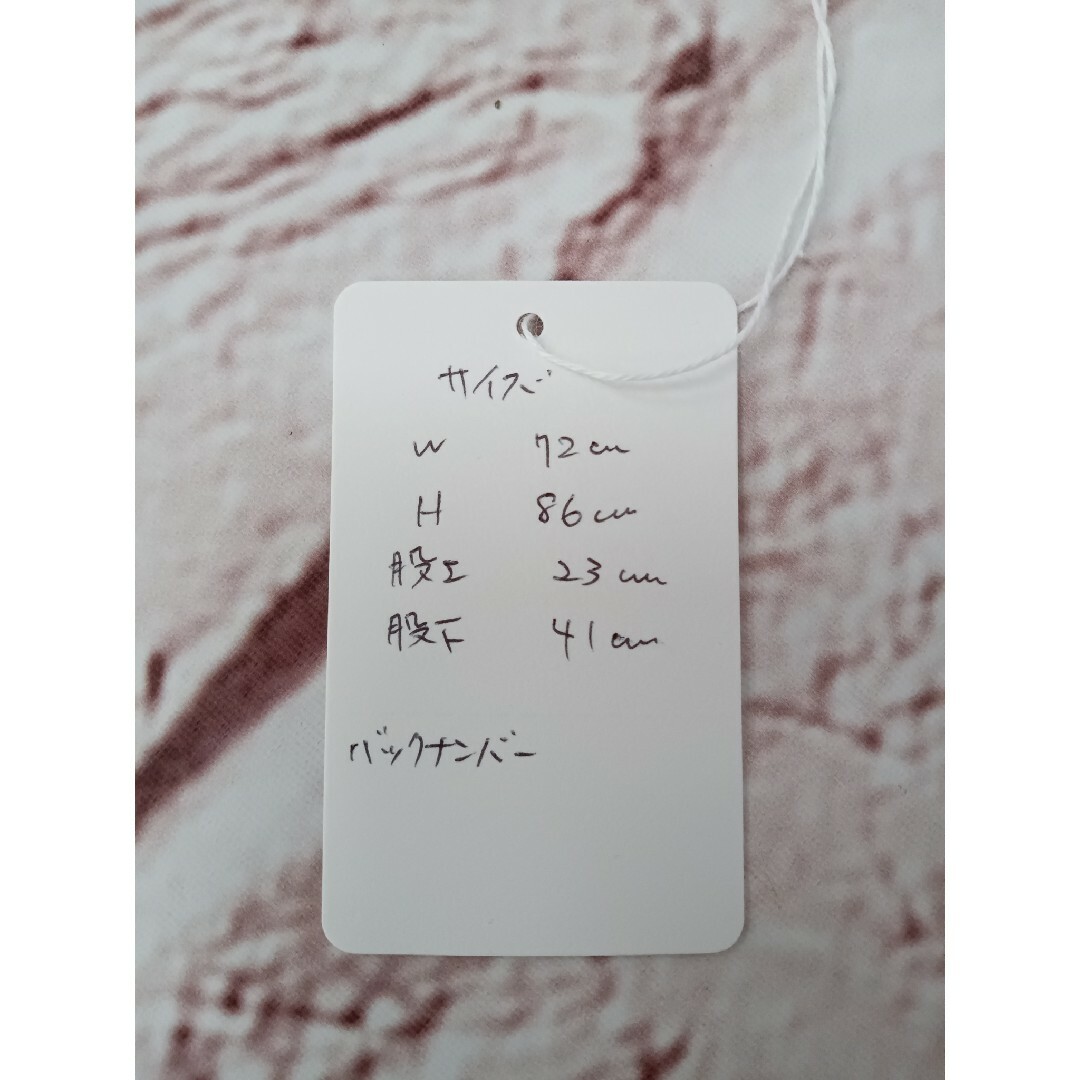 サイズ
W 72cm
H 86cm
股上 23cm
股下 41cm
バックナンバー